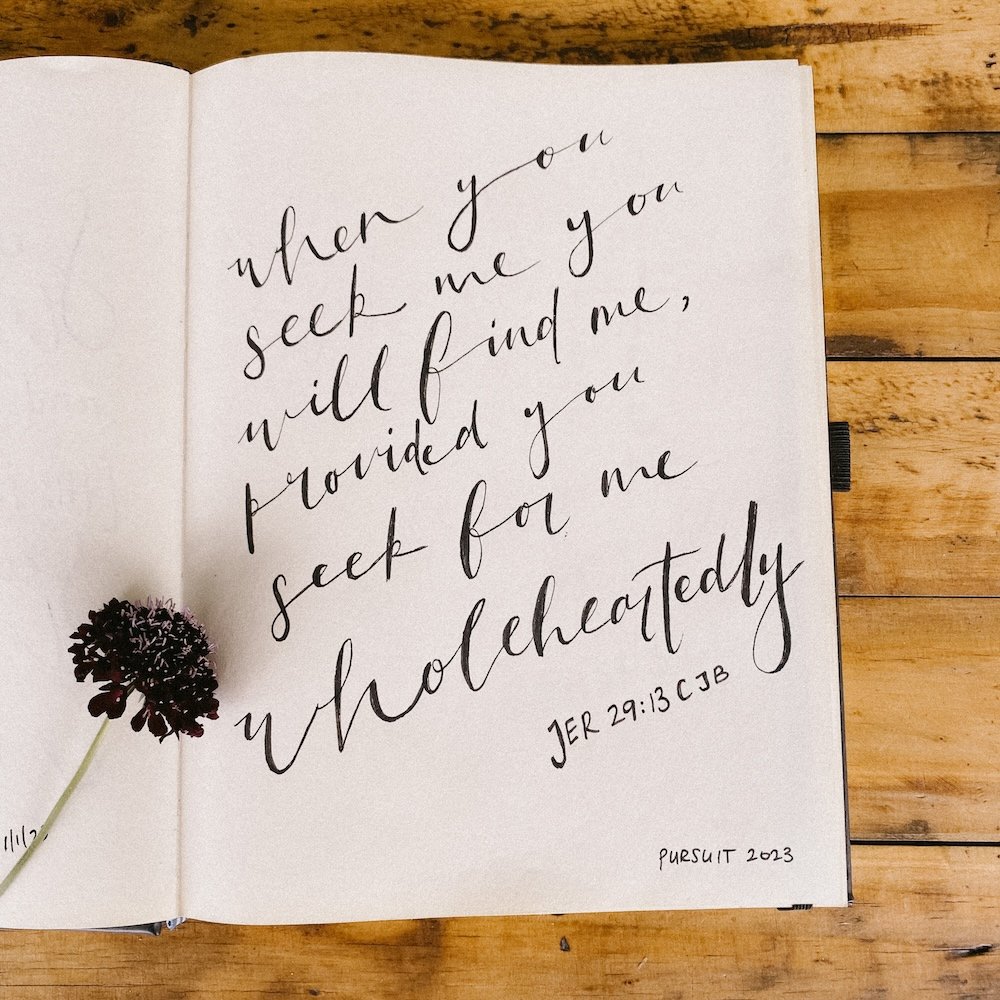 when you
seek me you
will find me,
provided you
seek for me
wholeheartedly
JER 29:13 CJB
PURSUIT 2023